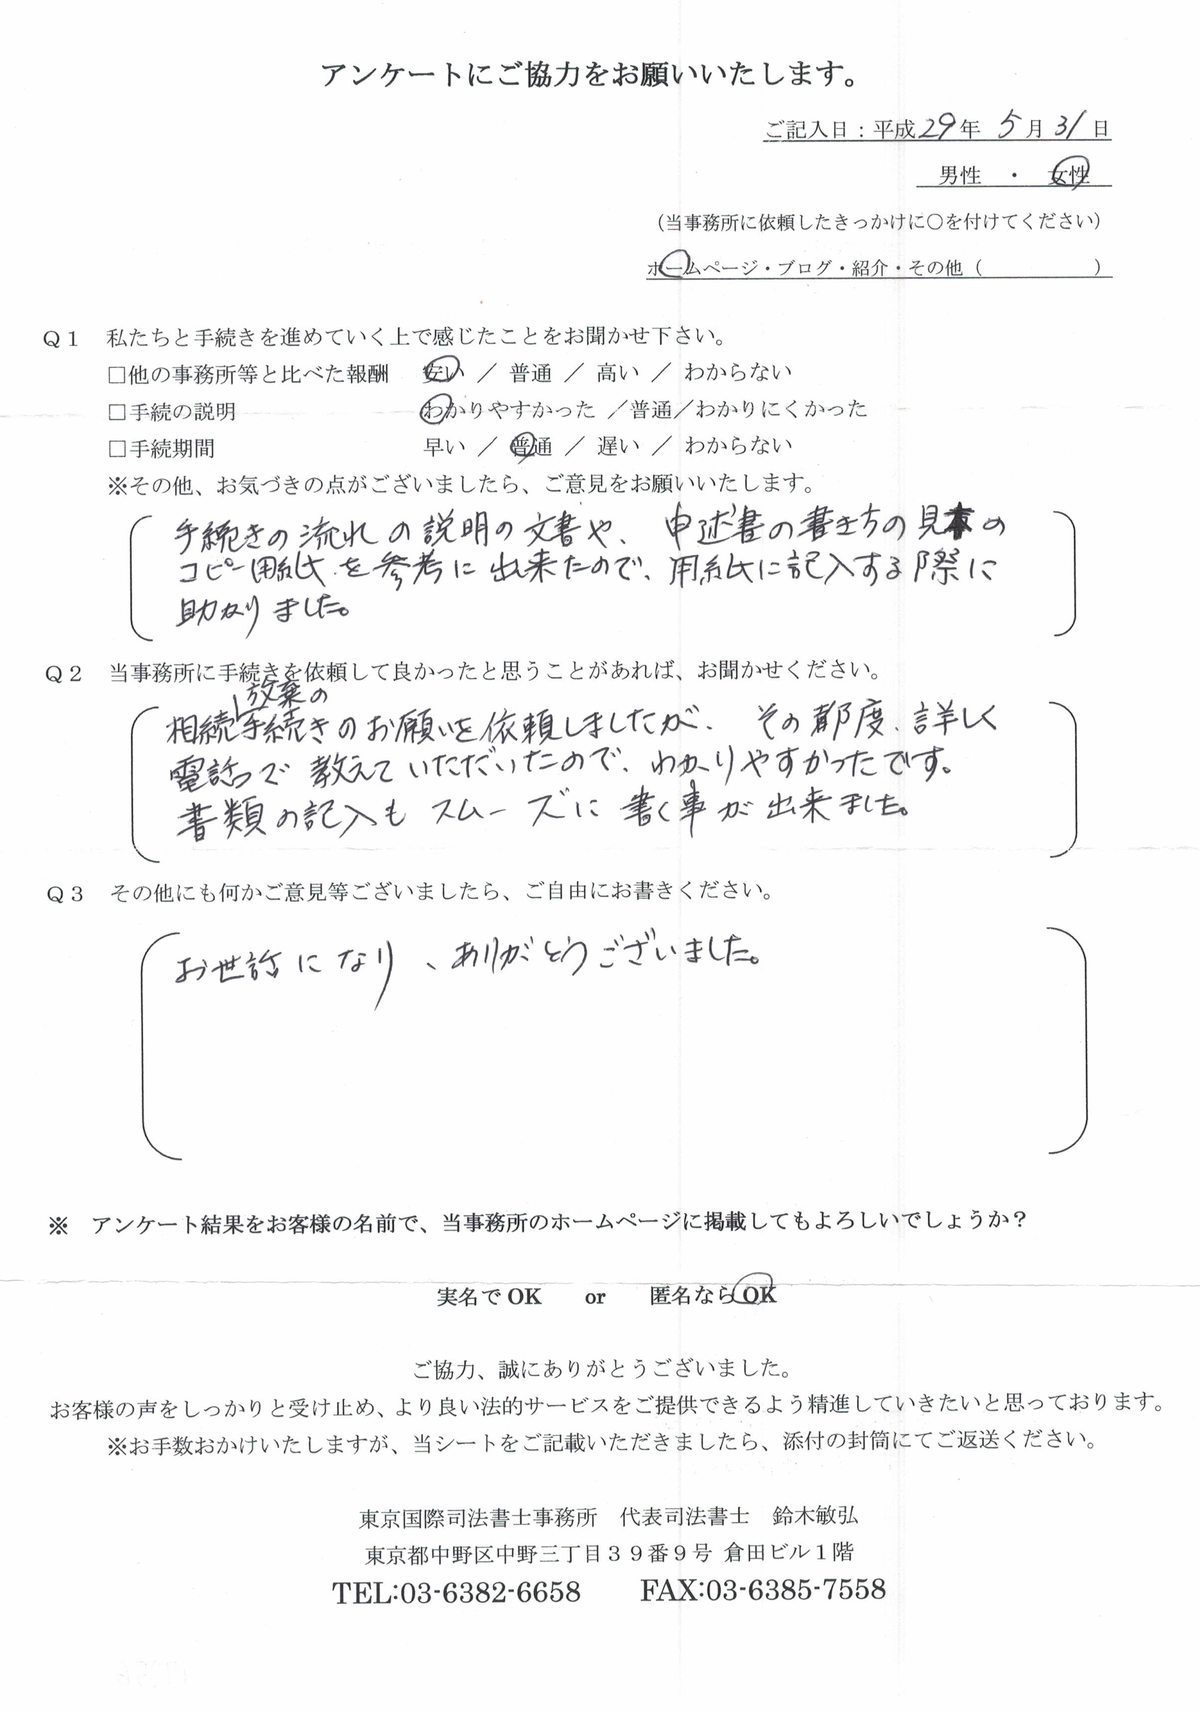 アンケートにご協力をお願いいたします。
ご記入日：平成29年 5月31日
男性 ・ 女性
（当事務所に依頼したきっかけに○を付けてください）
ホームページ・ブログ・紹介・その他（ ）
Q1 私たちと手続きを進めていく上で感じたことをお聞かせ下さい。
□他の事務所等と比べた報酬 安い ／ 普通 ／ 高い ／ わからない
□手続の説明 わかりやすかった ／普通／わかりにくかった
□手続期間 早い ／ 普通 ／ 遅い ／ わからない
※その他、お気づきの点がございましたら、ご意見をお願いいたします。
手続きの流れの説明の文書や、申述書の書き方の見本の
コピー用紙を参考に出来たので、用紙に記入する際に
助かりました。
Q2 当事務所に手続きを依頼して良かったと思うことがあれば、お聞かせください。
相続放棄の手続きのお願いを依頼しましたが、その都度、詳しく
電話で教えていただいたので、わかりやすかったです。
書類の記入もスムーズに書く事が出来ました。
Q3 その他にも何かご意見等ございましたら、ご自由にお書きください。
お世話になり、ありがとうございました。
※ アンケート結果をお客様の名前で、当事務所のホームページに掲載してもよろしいでしょうか？
実名でOK or 匿名ならOK
ご協力、誠にありがとうございました。
お客様の声をしっかりと受け止め、より良い法的サービスをご提供できるよう精進していきたいと思っております。
※お手数おかけいたしますが、当シートをご記載いただきましたら、添付の封筒にてご返送ください。
東京国際司法書士事務所 代表司法書士 鈴木敏弘
東京都中野区中野三丁目３９番９号 倉田ビル１階
TEL:03-6382-6658 FAX:03-6385-7558